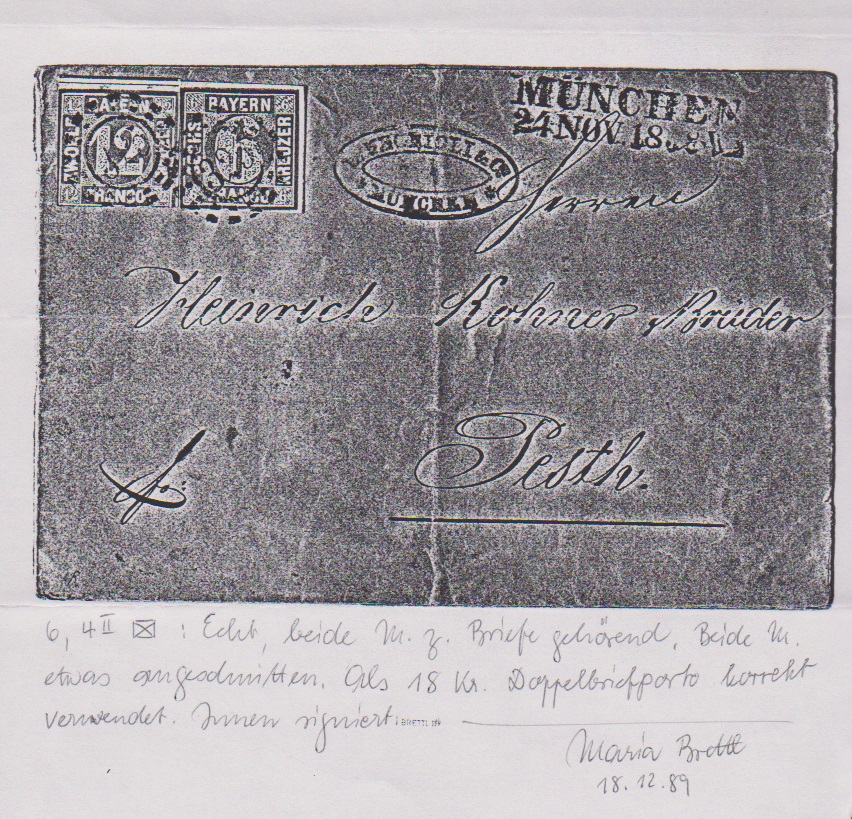 BAYERN
12
FRANCO
BAYERN
SECHS
6
KREUZER
FRANCO
MÜNCHEN
24 NOV. 18
& Co
MÜNCHEN
Herren
Heinrich Kohner Brüder
Pesth.
6, 4 II ⊠ : Echt, beide M. z. Briefe gehörend. Beide M.
etwas angeschnitten. Als 18 Kr. Doppelbriefporto korrekt
verwendet. Innen signiert BRETTL
Maria Brettl
18.12.89